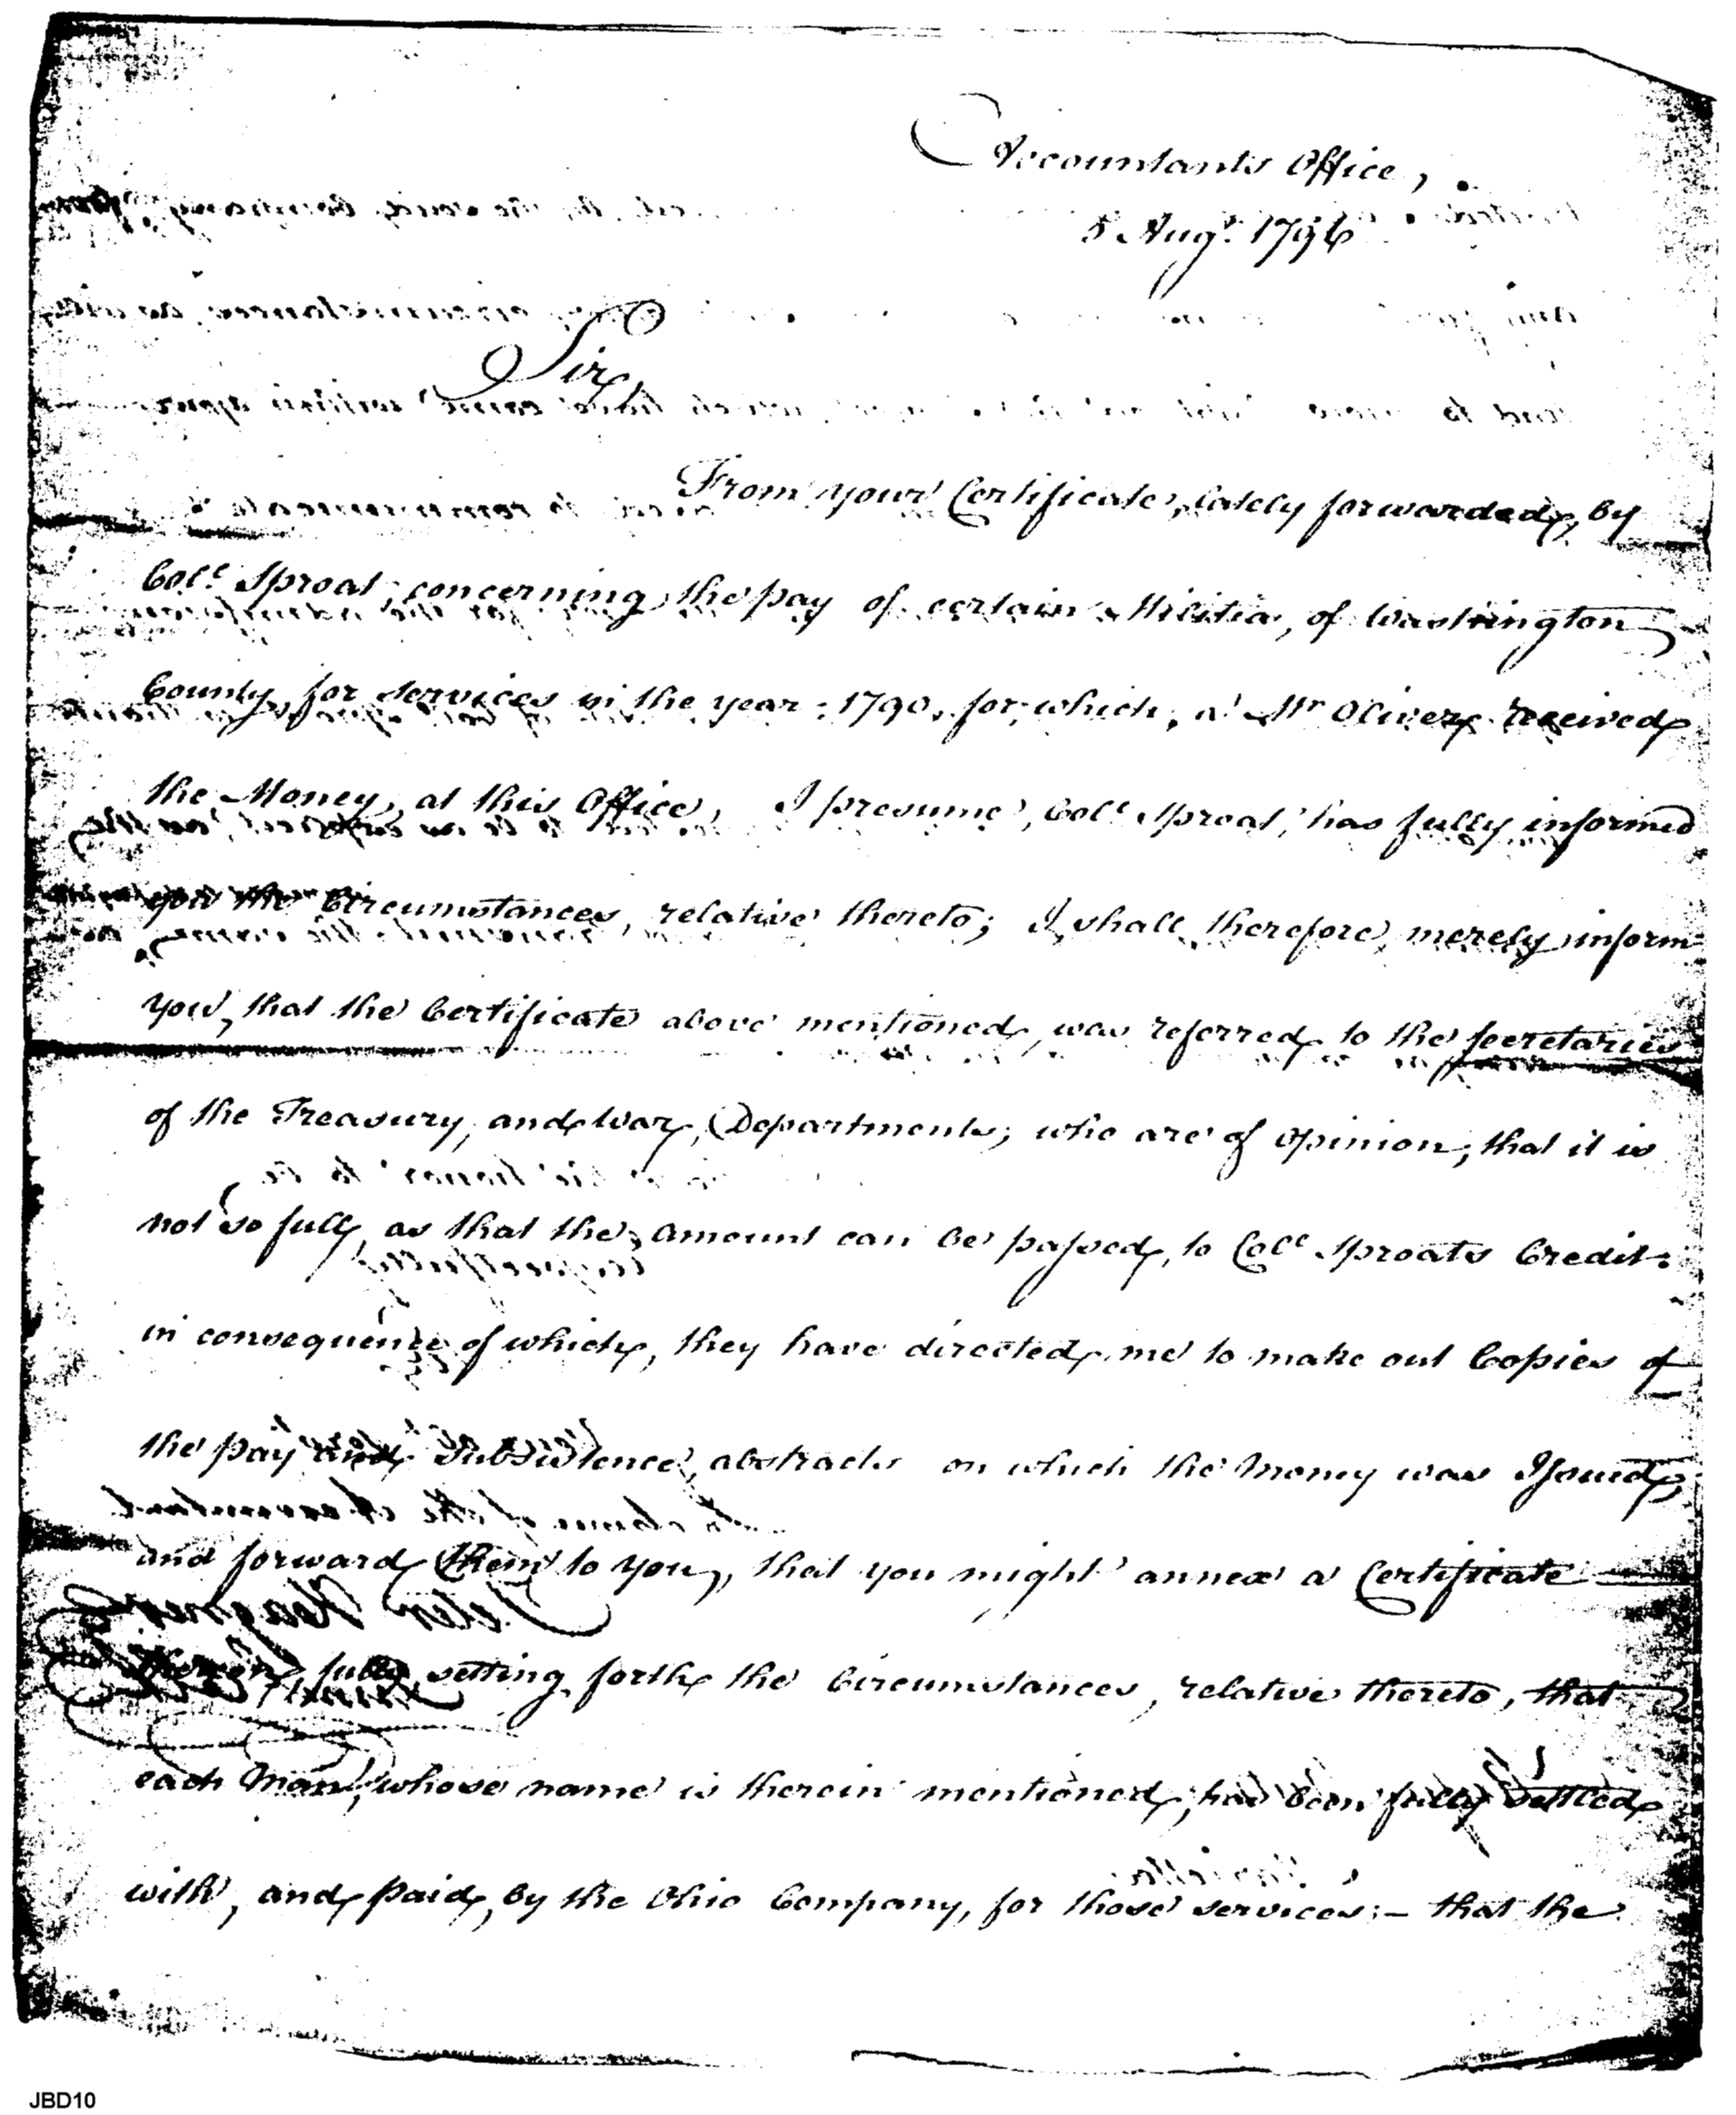 Accountants Office,
5 Augt. 1796
Sir,
From your Certificate, lately forwarded, by
Coll. Sproat, concerning the pay of certain Militia, of Washington
County, for services in the year 1790, for which, a Mr Oliver received
the Money, at this Office, I presume, Coll. Sproat, has fully informed
you the Circumstances, relative thereto; I shall therefore, merely inform
you, that the Certificate above mentioned, was referred to the secretaries
of the Treasury, and War, Departments; who are of opinion, that it is
not so full, as that the amount can be passed, to Coll Sproats Credit.
in consequence of which, they have directed me to make out Copies of
the pay and Subsistence, abstracts on which the Money was Issued,
and forward them to you, that you might annex a Certificate
fully setting forth the Circumstances, relative thereto, that
each Man, whose name is therein mentioned, has been fully settled
with, and paid, by the Ohio Company, for those services:- that the
JBD10